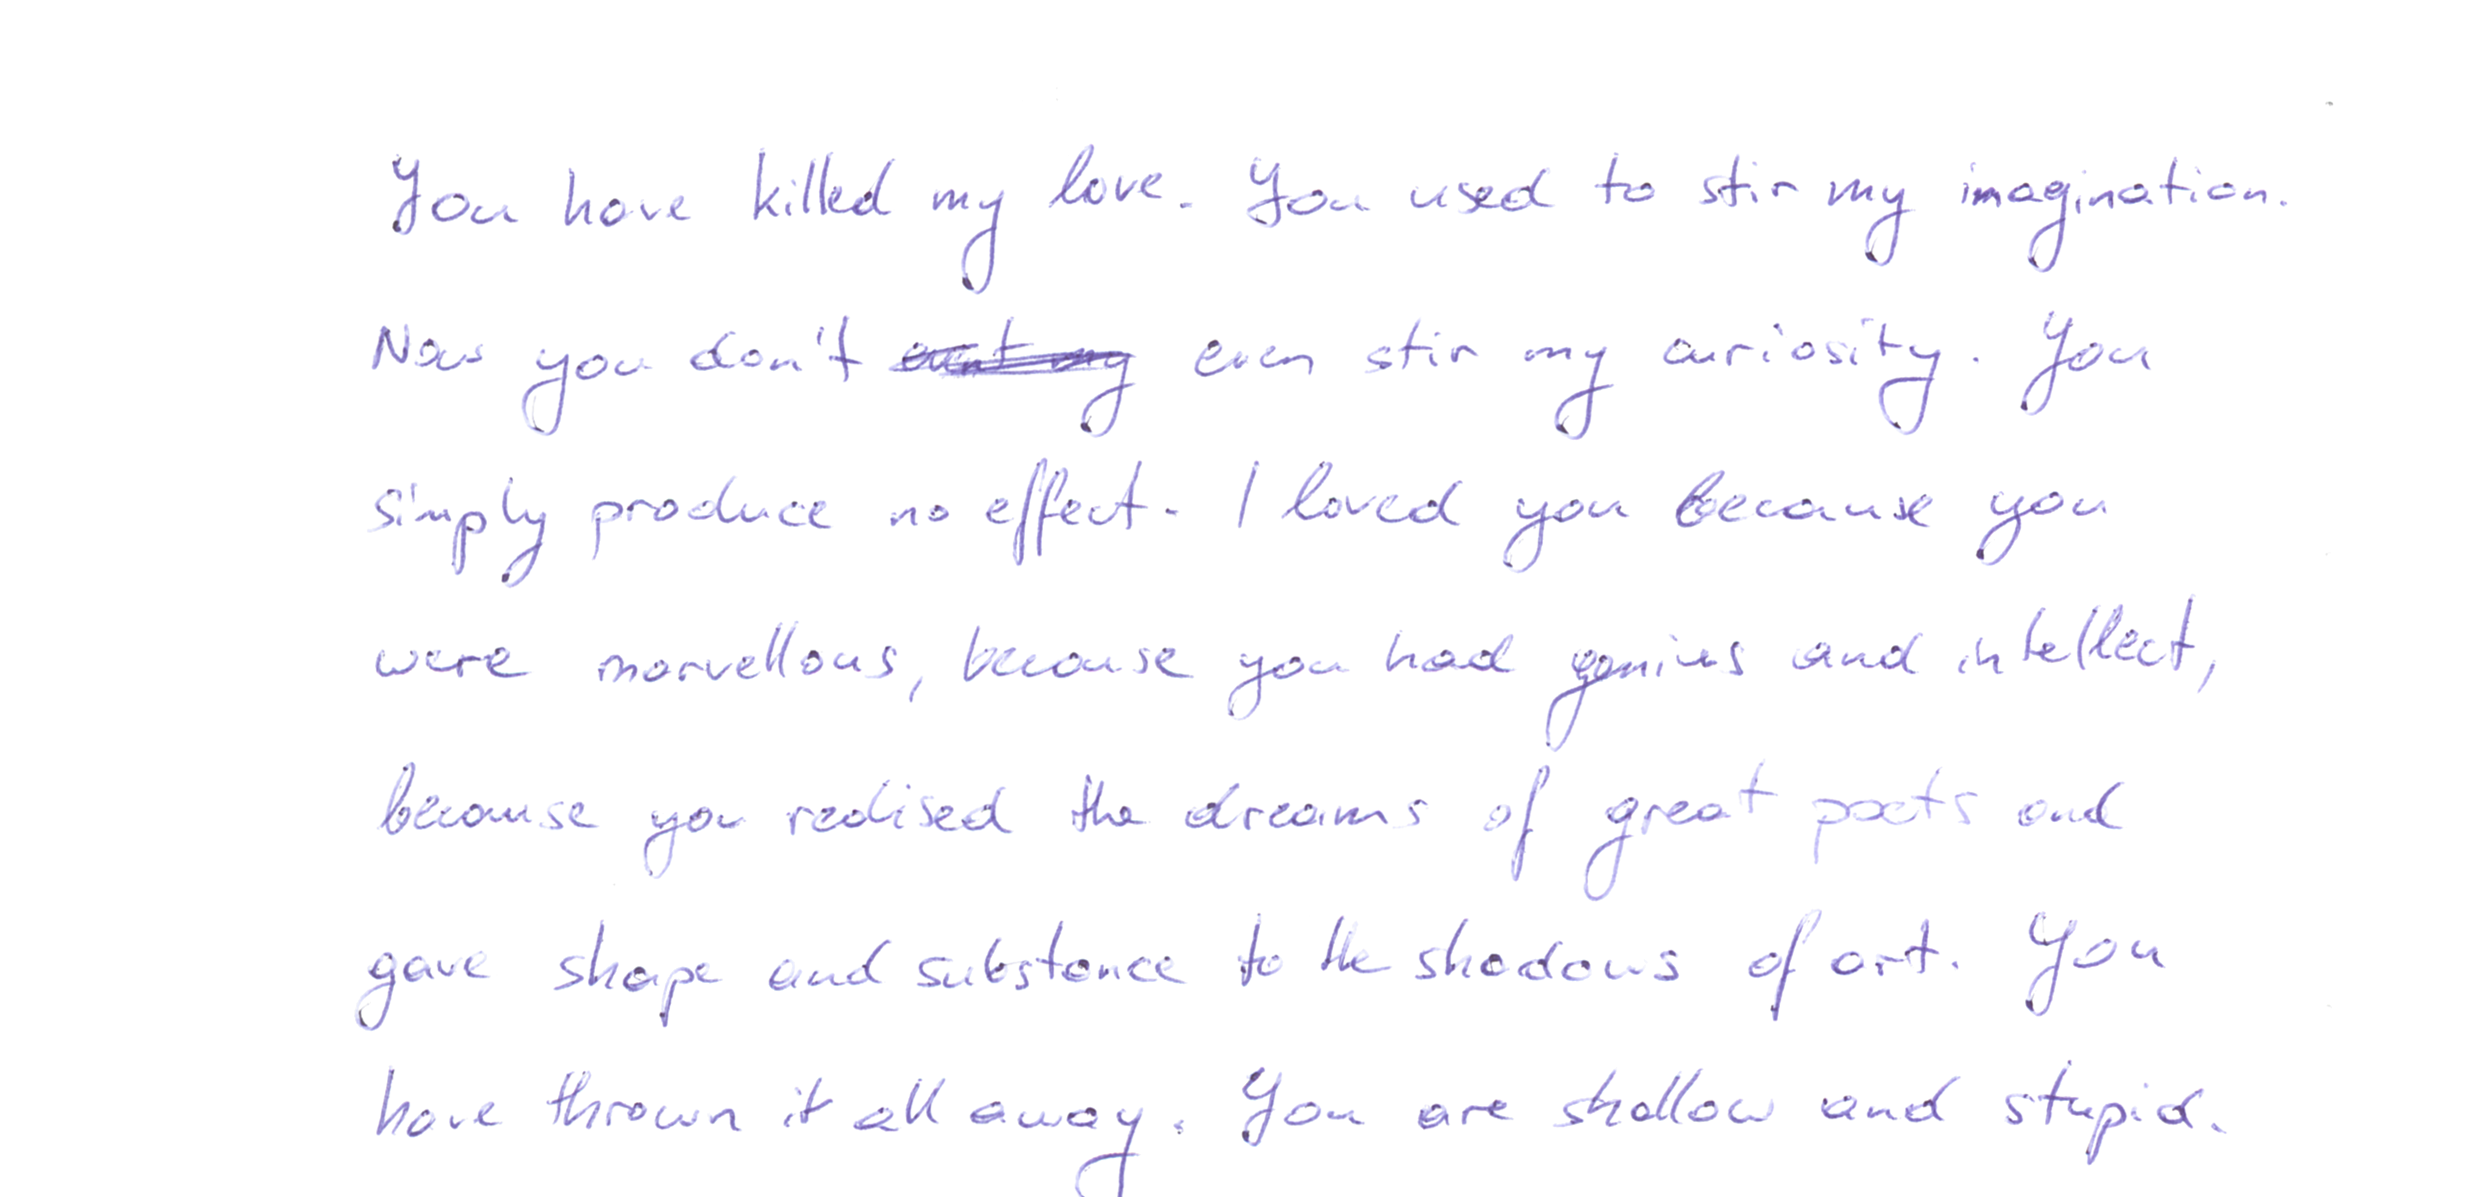 You have killed my love. You used to stir my imagination.
Now you don't even stir my curiosity. You
simply produce no effect. I loved you because you
were marvellous, because you had genius and intellect,
because you realised the dreams of great poets and
gave shape and substance to the shadows of art. You
have thrown it all away. You are shallow and stupid.